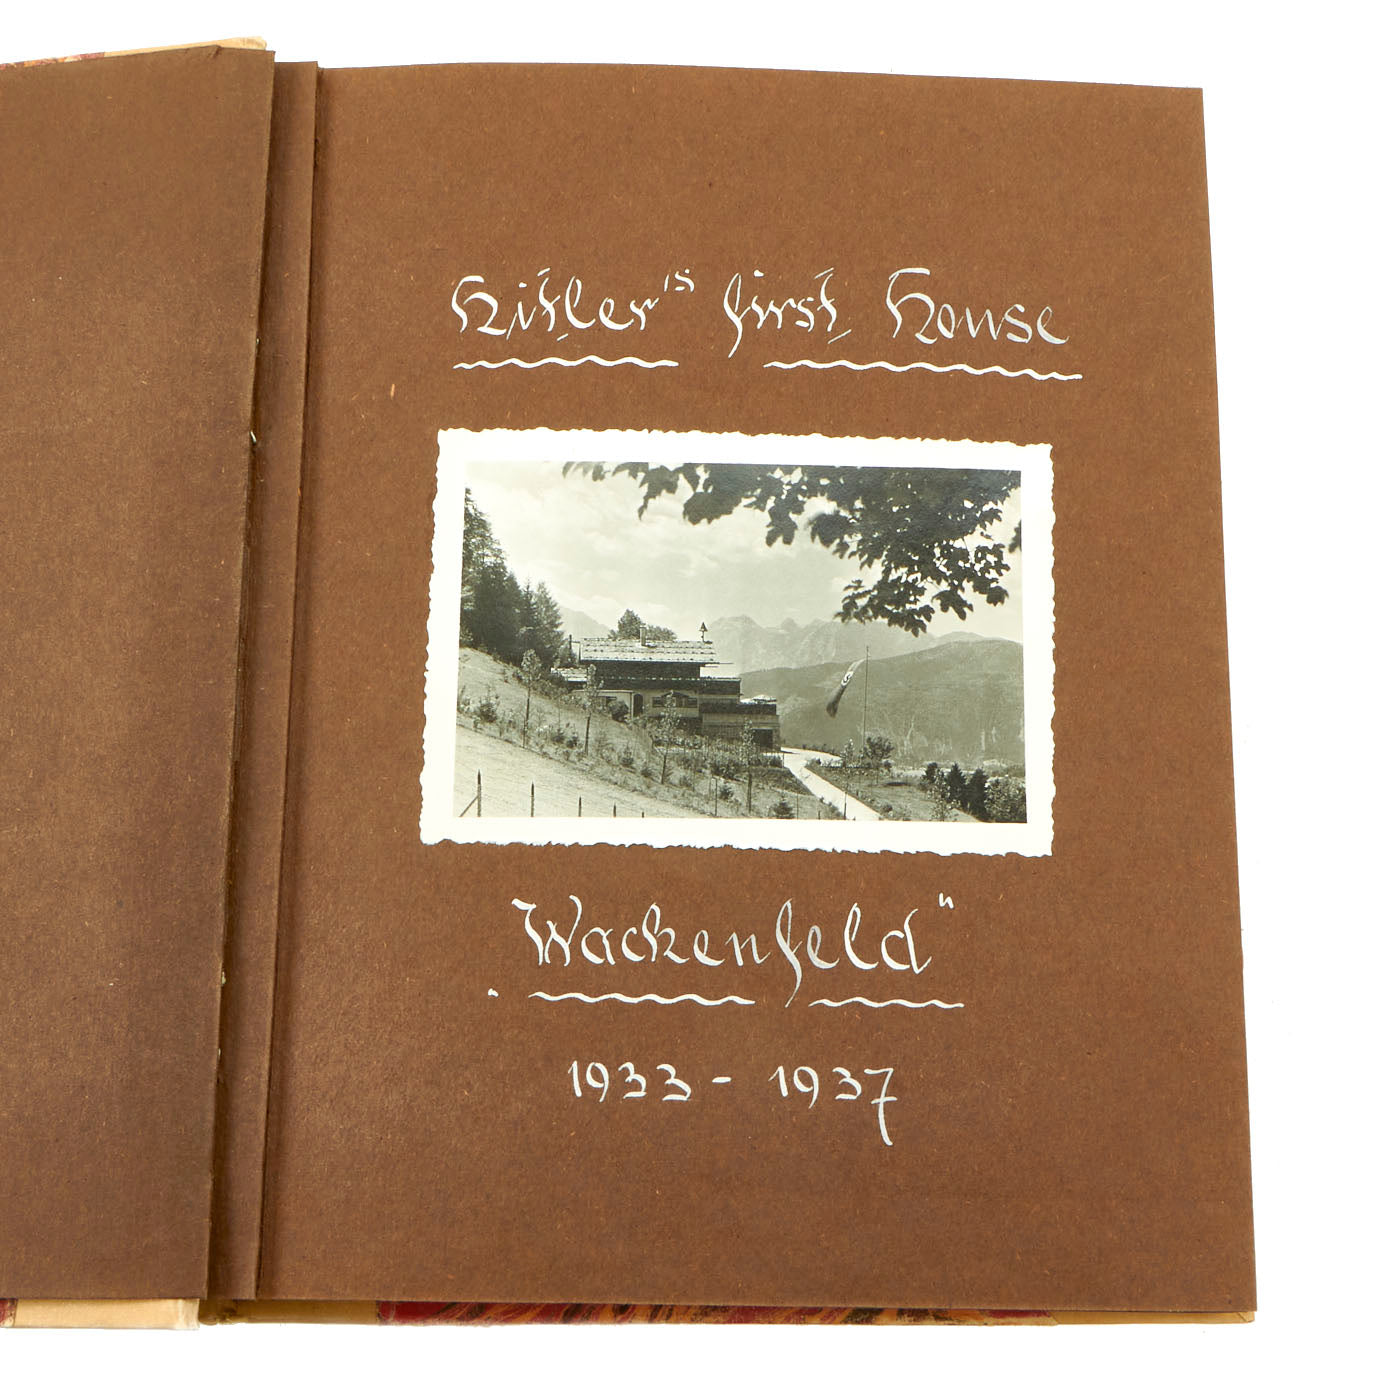 Hitler's first House
"Wackenfeld"
1933 - 1937